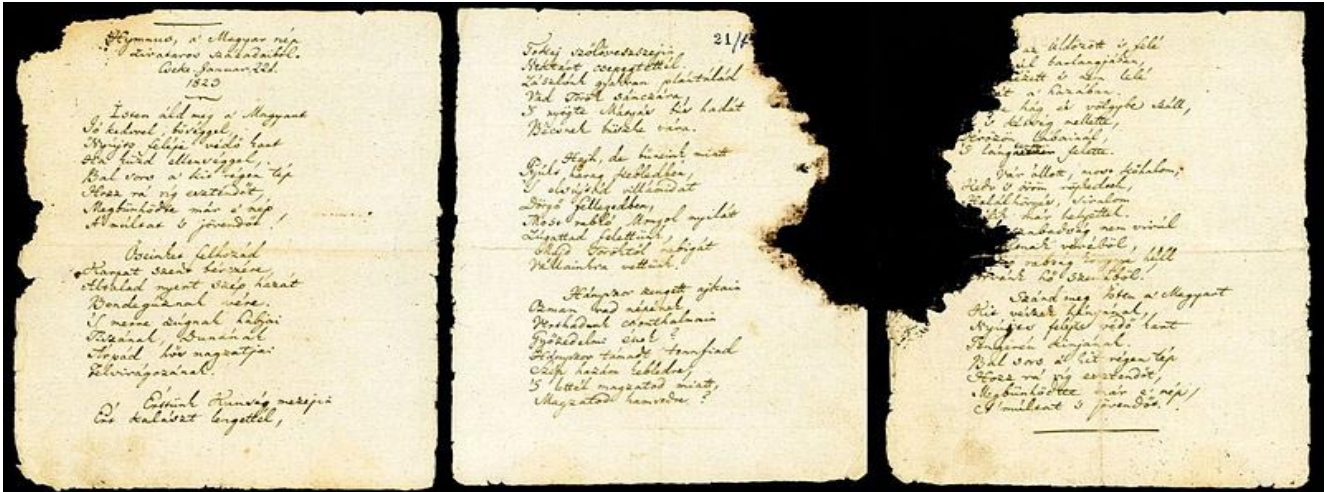 Hymnus, a' Magyar nép
zivataros századaiból.
Cseke, Januar. 22d.
1823
Isten áld meg a' Magyart
Jó kedvvel, bőséggel,
Nyújts feléje védő kart
Ha küzd ellenséggel,
Bal sors a' kit régen tép
Hozz rá víg esztendőt,
Megbünhődte már e' nép
A' múltat 's jövendőt.
Őseinket felhozád
Kárpát szent bérczére,
Általad nyert szép hazát
Bendegúznak vére.
'S merre zúgnak habjai
Tiszának, Dunának
Árpád hős magzatjai
Felvirágozának.
Értünk Kunság mezejin
Ért kalászt lengettél,
21/
Tokaj szőlőveszszejin
Nektárt csepegtettél.
Zászlónk gyakran plántálád
Vad Török sánczára,
'S nyögte Mátyás bús hadát
Bécsnek büszke vára.
Hajh, de bűneink miatt
Gyúlt harag kebledben,
'S elsújtád villámidat
Dörgő fellegedben,
Most rabló Mongol nyilát
Zúgattad felettünk,
Majd Töröktől rabigát
Vállainkra vettünk.
Hányszor zengett ajkain
Ozman vad népének
Vert hadunk csonthalmain
Győzedelmi ének?
Hányszor támadt tennfiad
Szép hazám kebledre,
'S lettél magzatod miatt,
Magzatod hamvedre?
az üldözött is felé
barlangjában,
's nem lelé
a' hazában.
hág és völgybe száll,
'S kétség mellette,
Vérözön lábainál,
'S lángtenger felette.
Vár állott, most kőhalom,
Kedv 's öröm röpkedtek,
Halálhörgés, siralom
már helyettek.
szabadság nem virúl
véréből,
rabság könnye hull
hő szeméből.
Szánd meg Isten a' Magyart
Kit vészek hányának,
Nyújts feléje védő kart
Tengerén kínjának.
Bal sors a' kit régen tép
Hozz rá víg esztendőt,
Megbünhődte már e' nép
A' múltat 's jövendőt.